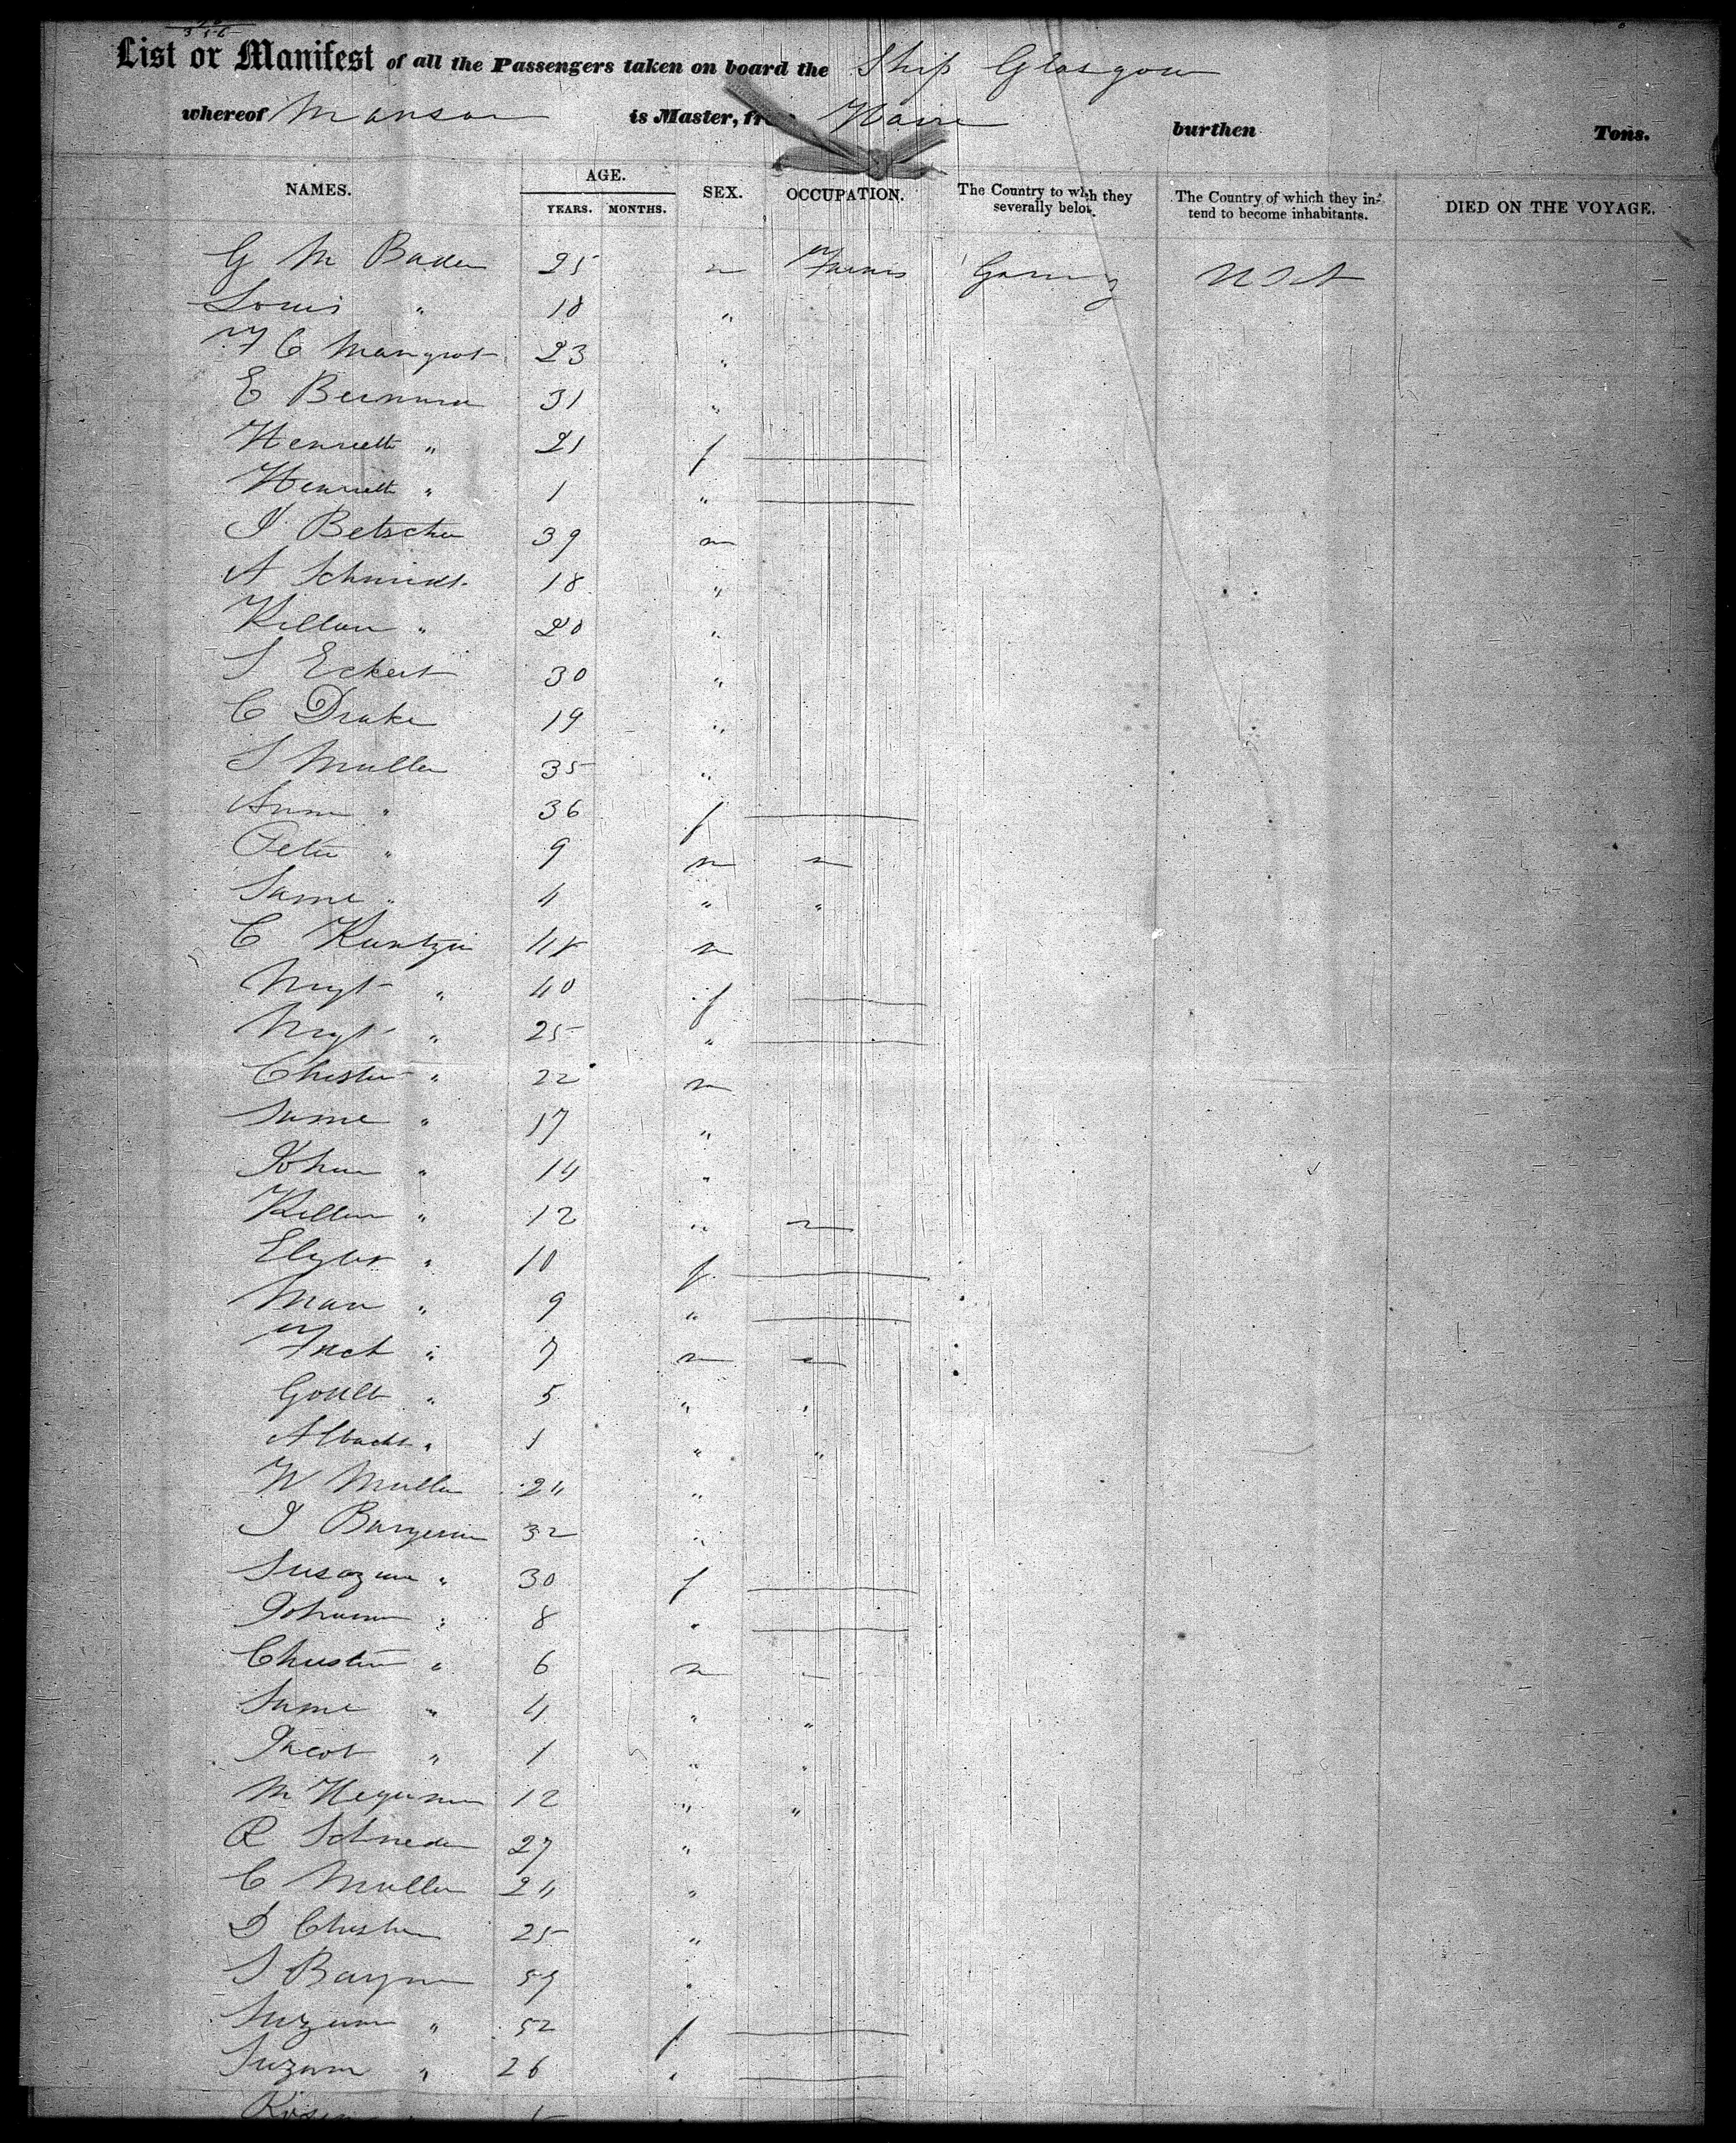 List or Manifest of all the Passengers taken on board the Ship Glasgow
whereof Manson is Master, from Havre burthen Tons.
NAMES. AGE. YEARS. MONTHS. SEX. OCCUPATION. The Country to which they severally belong. The Country of which they intend to become inhabitants. DIED ON THE VOYAGE.
G M Bader 25 m Germy USA
Louis " 18 "
F C 23 "
E 31 "
Henrietta " 21 f
Henrietta " 1 "
J Betscher 39 m
A Schmidt 18 "
Killian " 20 "
S Eckert 30 "
C Drake 19 "
S Muller 35 "
Anna " 36 f
Peter " 9 m
Same " 4 " "
C 48 m
Mgt " 40 f
Mgt " 25 "
Christn " 22 m
Same " 17 "
Johan " 14 "
Killian " 12 "
" 10 f
" 9 "
" 7 m
" 5 " "
" 1 " "
W Muller 24 "
J 32 "
" 30 f
Johanna " 8 "
Christn " 6 m
Same " 4 " "
Jacob " 1 " "
M 12 " "
R Schneder 27 "
C Muller 24 "
D Christn 25 "
S 59 "
Suzann " 52 f
Suzann " 26 "